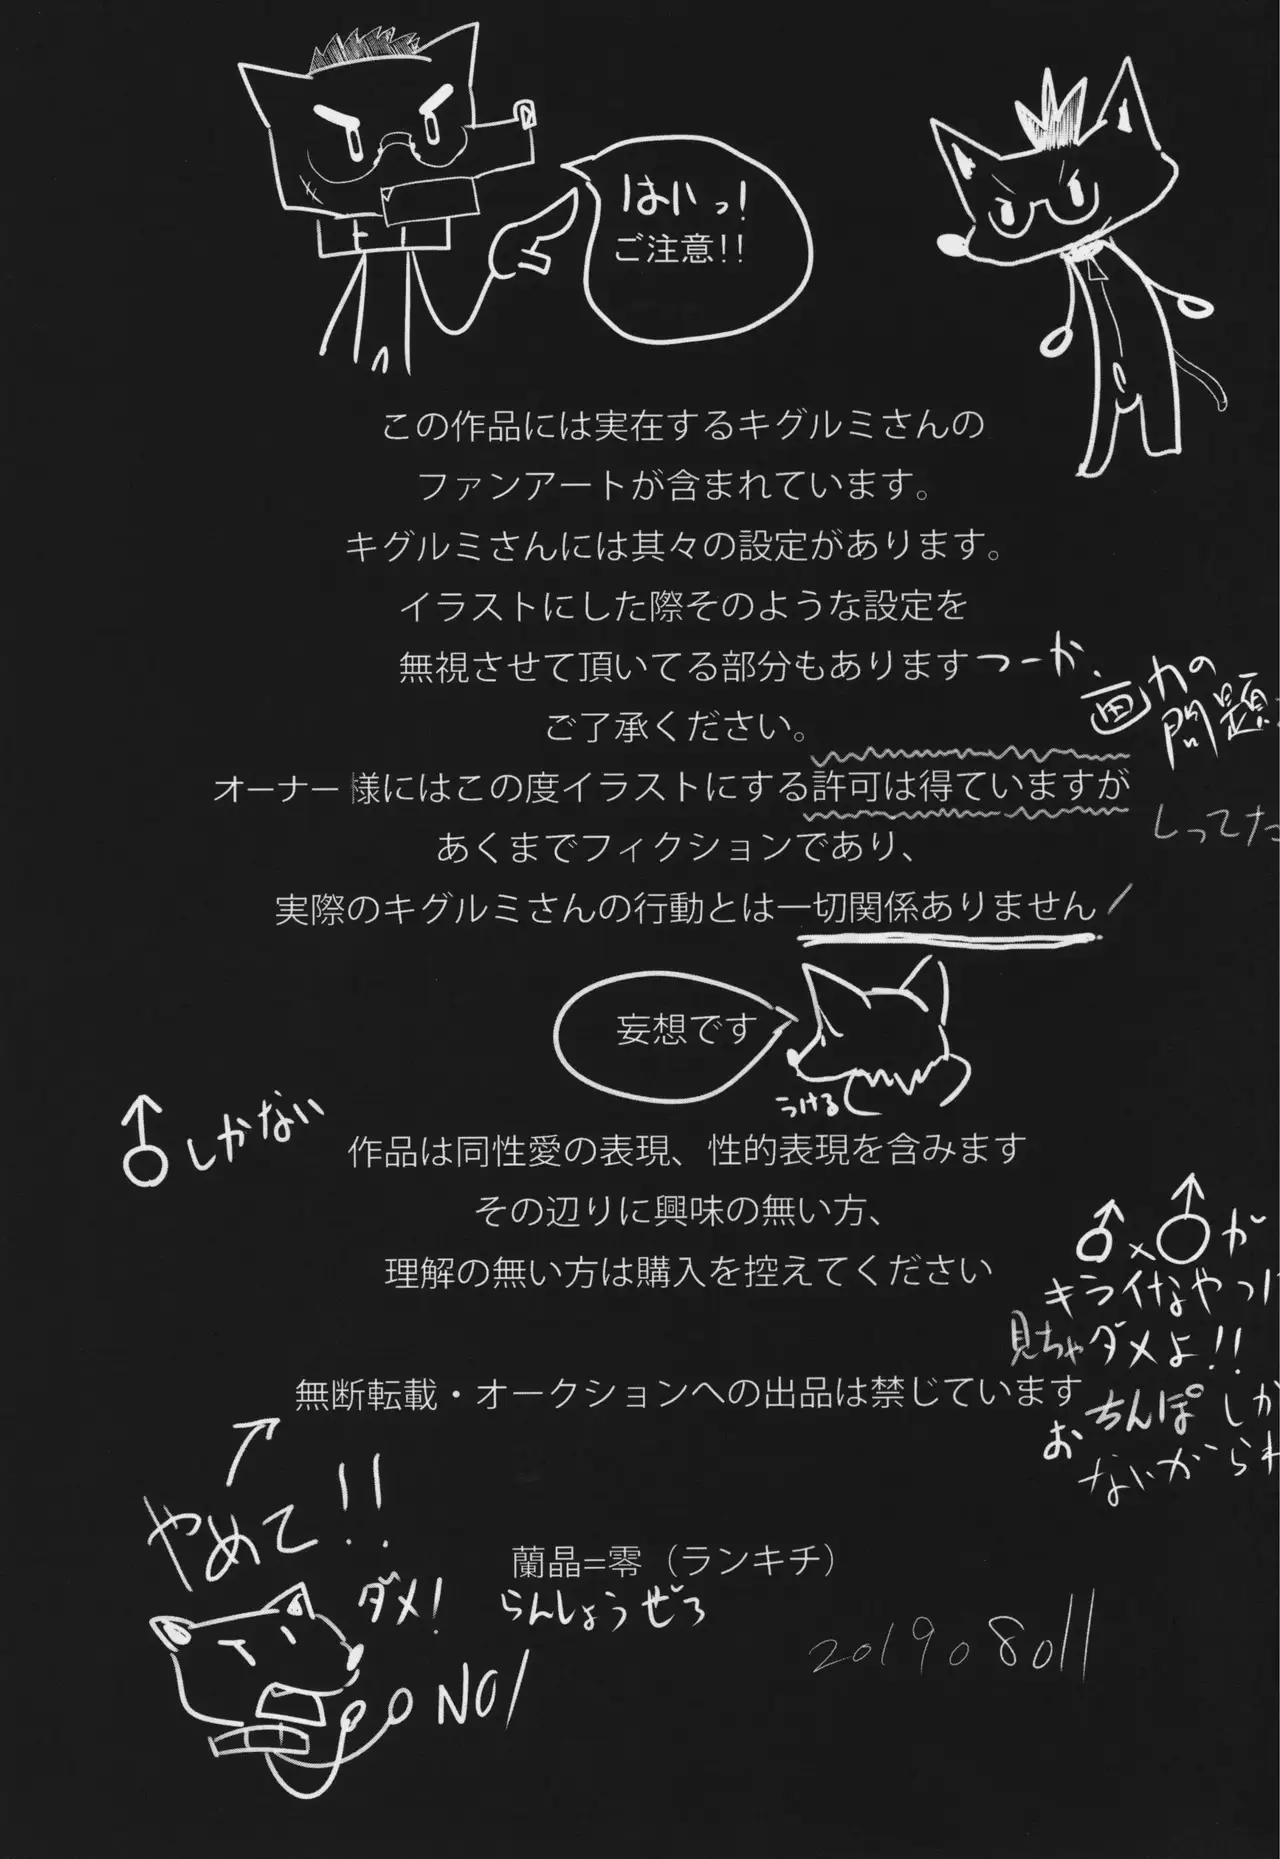 はいっ!
ご注意!!
この作品には実在するキグルミさんの
ファンアートが含まれています。
キグルミさんには其々の設定があります。
イラストにした際そのような設定を
無視させて頂いてる部分もあります
つーか、
画力の
問題
ご了承ください。
オーナー様にはこの度イラストにする許可は得ていますが
してた
あくまでフィクションであり、
実際のキグルミさんの行動とは一切関係ありません
妄想です
うける
♂しかない
作品は同性愛の表現、性的表現を含みます
その辺りに興味の無い方、
理解の無い方は購入を控えてください
♂×♂が
キライなやつは
見ちゃダメよ!!
おちんぽしか
ないから
無断転載・オークションへの出品は禁じています
やめて!!
ダメ!
NO!
蘭晶=零（ランキチ）
らんしょうぜろ
20190811